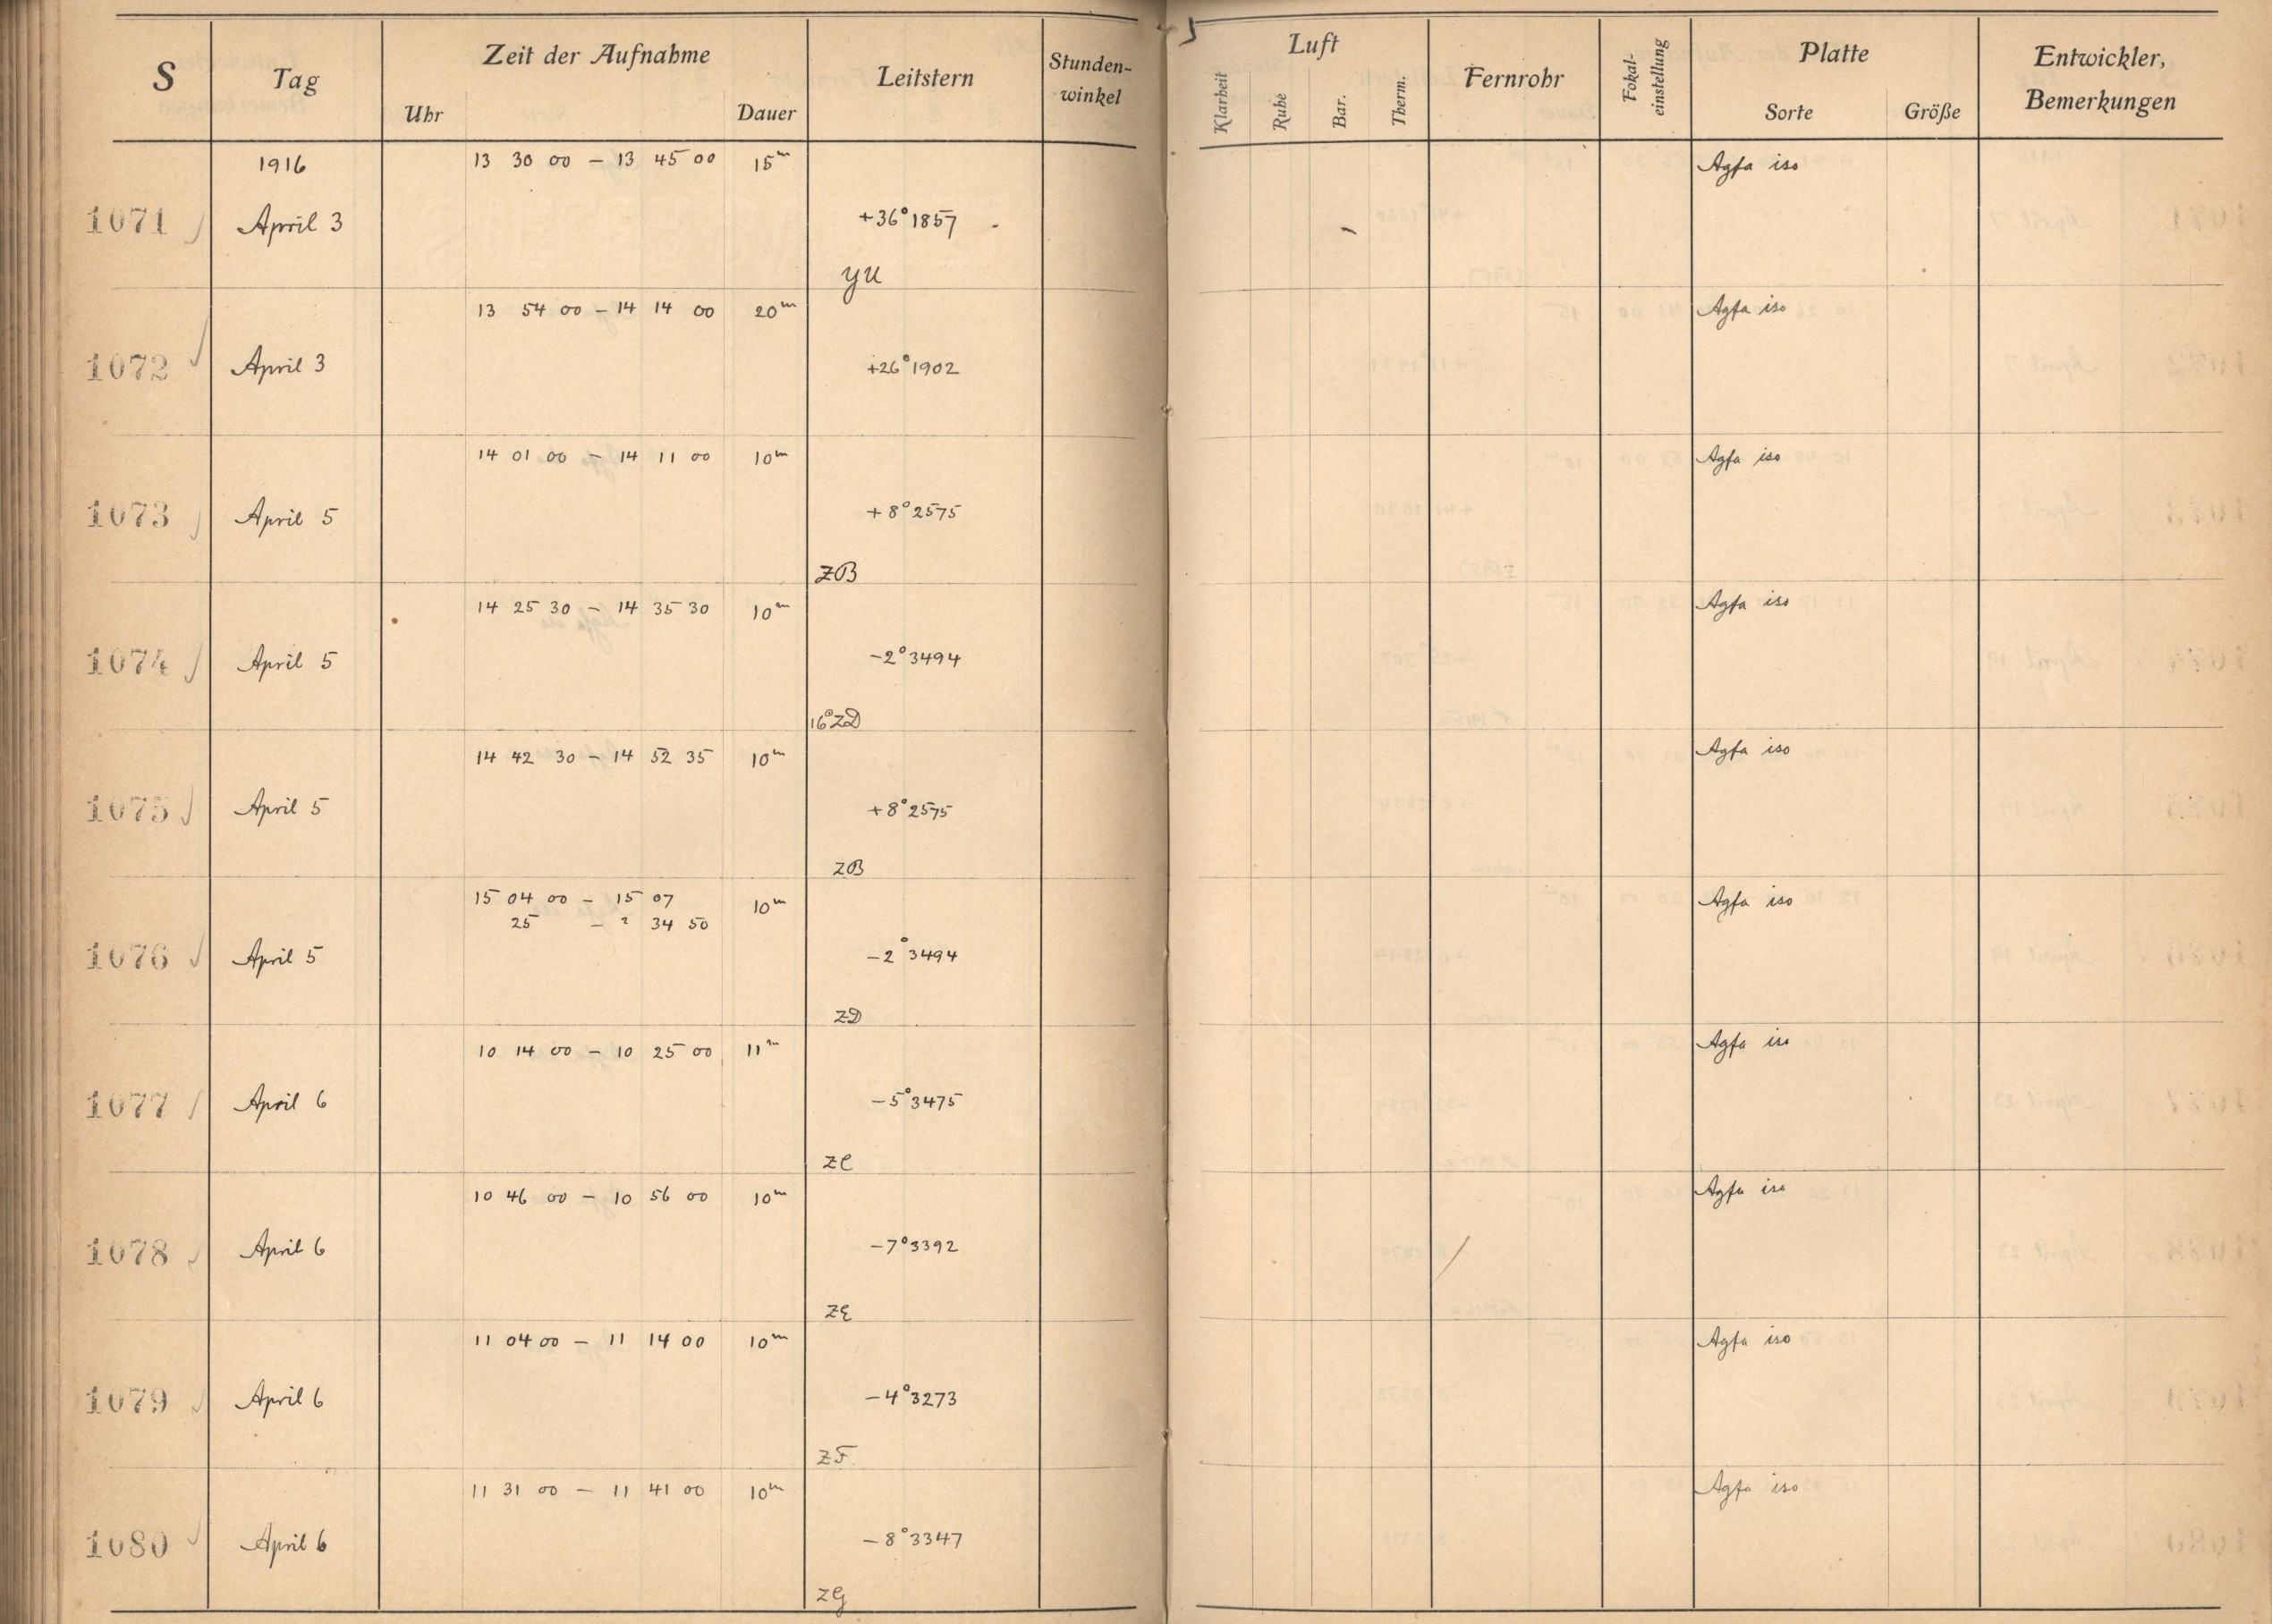 S Tag Zeit der Aufnahme Leitstern Stunden-winkel Luft Fernrohr Fokal-einstellung Platte Entwickler, Bemerkungen
Uhr Dauer Klarheit Ruhe Bar. Therm. Sorte Größe
1916 13 30 00 – 13 45 00 15m Agfa iso
1071 April 3 +36° 1857
YU
13 54 00 – 14 14 00 20m Agfa iso
1072 April 3 +26° 1902
14 01 00 – 14 11 00 10m Agfa iso
1073 April 5 +8° 2575
ZB
14 25 30 – 14 35 30 10m Agfa iso
1074 April 5 –2° 3494
16° ZD
14 42 30 – 14 52 35 10m Agfa iso
1075 April 5 +8° 2575
ZB
15 04 00 – 15 07 10m Agfa iso
25 – ? 34 50
1076 April 5 –2° 3494
ZD
10 14 00 – 10 25 00 11m Agfa iso
1077 April 6 –5° 3475
ZC
10 46 00 – 10 56 00 10m Agfa iso
1078 April 6 –7° 3392
ZE
11 04 00 – 11 14 00 10m Agfa iso
1079 April 6 –4° 3273
ZF
11 31 00 – 11 41 00 10m Agfa iso
1080 April 6 –8° 3347
ZG